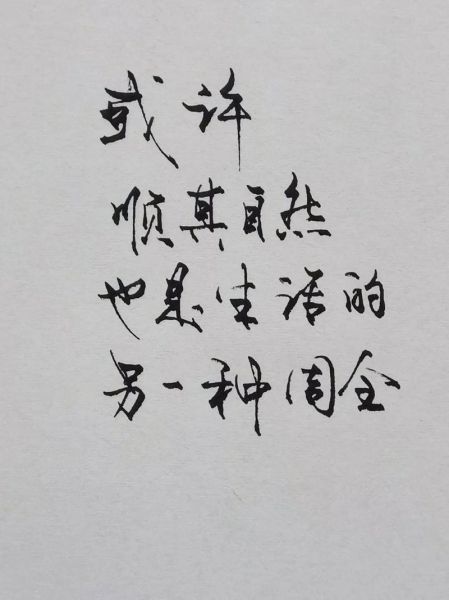 或许
顺其自然
也是生活的
另一种周全